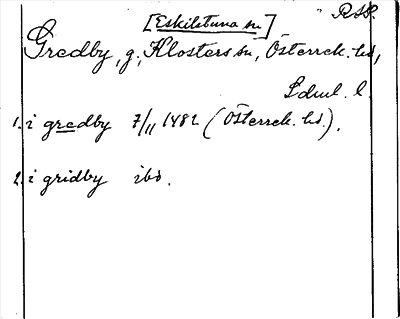 RAP.
[Eskilstuna sn]
Gredby, g., Klosters sn, Österrek. hd,
Sdml. l.
1. i gredby 7/11 1482 (Österrek. hd.).
2. i gridby ibd.